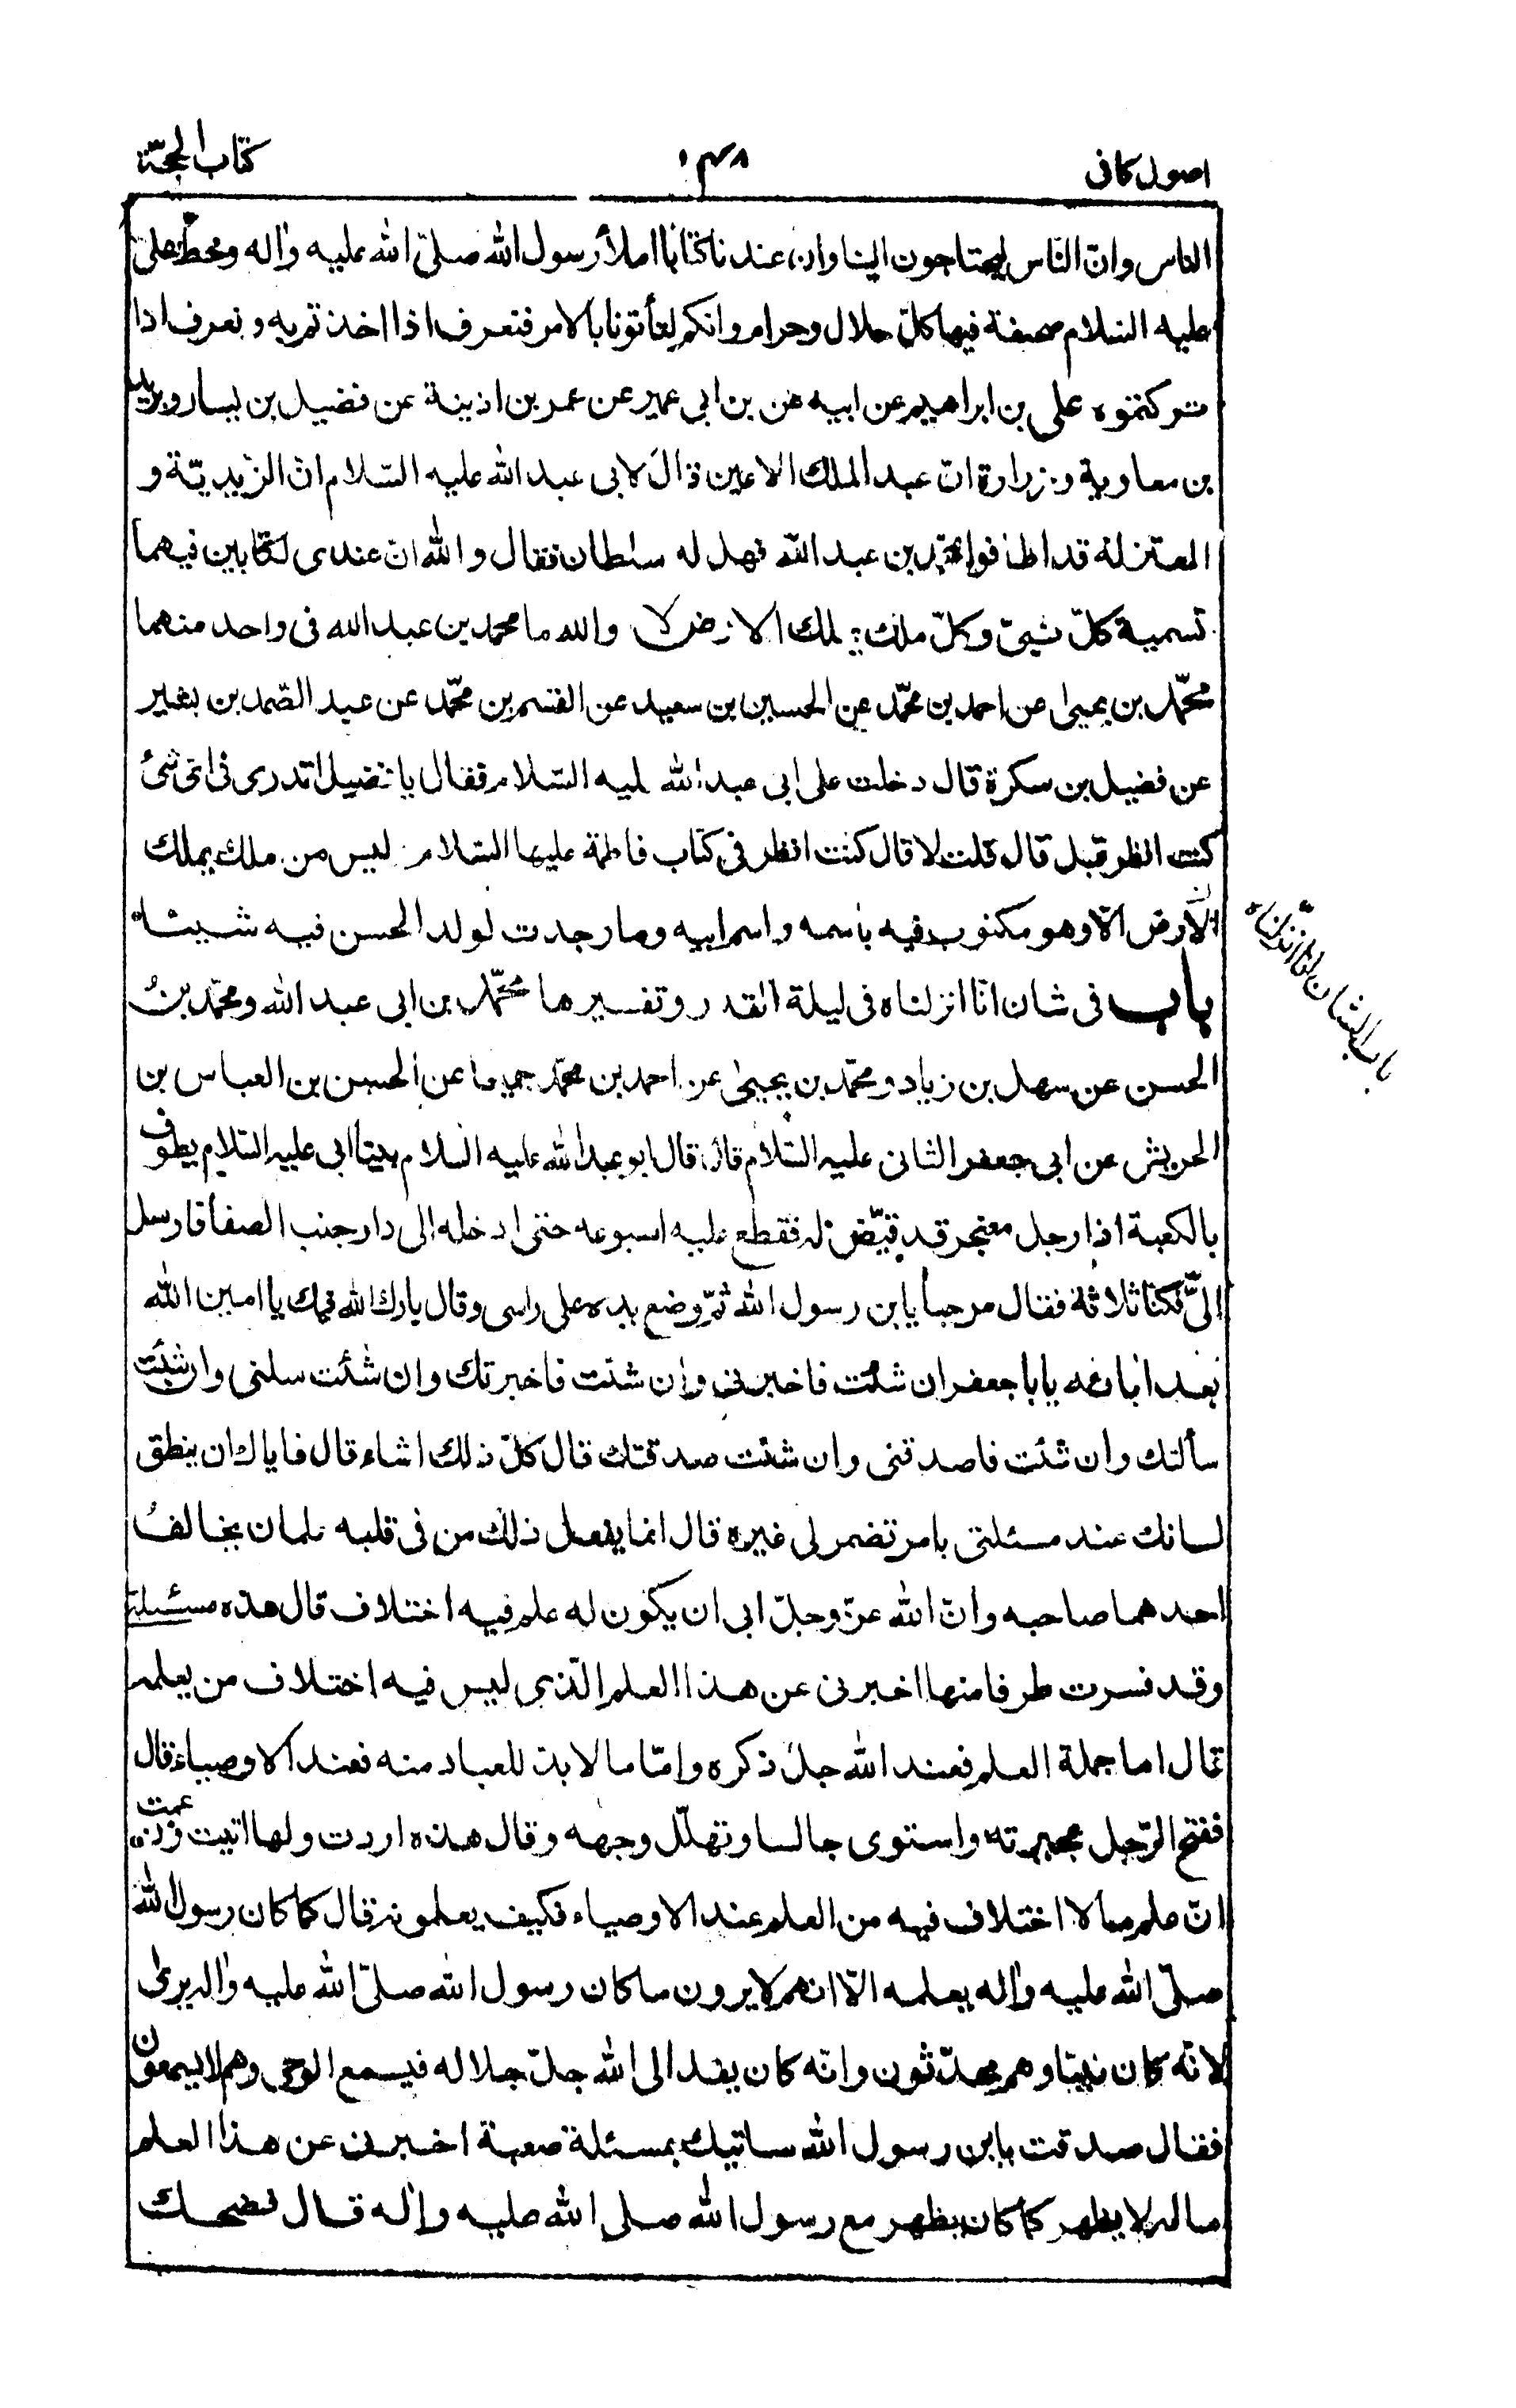 اصول کافی
۱۴۸
کتاب الحجّة
الناس وانّ النّاس ليحتاجون الينا وان عندنا کتابا املأ رسول الله صلیّ الله علیه واله وخطّ علیّ
علیه السّلام صحیفة فیها کلّ حلال وحرام وانکم لتأتونا بالامر فنعرف اذا اخذتم به و نعرف اذا
ترکتموه علی بن ابراهیم عن ابیه عن بن ابی عمیر عن عمر بن اذینة عن فضیل بن یسار وبرید
بن معاویة و زرارة انّ عبد الملک الاعین قال لابی عبد الله علیه السّلام انّ الزّیدیّة و
المعتزلة قد اطافوا بمحمّد بن عبد الله فهل له سلطان فقال و الله انّ عندی لکتابین فیهما
تسمیة کلّ شیئ وکلّ ملک یملک الارض لا والله ما محمد بن عبد الله فی واحد منهما
محمّد بن یحیی عن احمد بن محمّد عن الحسین بن سعید عن القسم بن محمّد عن عبد الصّمد بن بشیر
عن فضیل بن سکرة قال دخلت علی ابی عبد الله علیه السّلام فقال یا فضیل اتدری فی ایّ شئ
کنت انظر قبل قال قلت لا قال کنت انظر فی کتاب فاطمة علیها السّلام لیس من ملک یملک
الأرض الّا وهو مکتوب فیه باسمه واسم ابیه وما وجدت لولد الحسن فیه شیئا
باب فی شان انّا انزلناه فی لیلة القدر وتفسیرها محمّد بن ابی عبد الله ومحمّد بنُ
باب الشان انا انزلناه
الحسن عن سهل بن زیاد ومحمّد بن یحیی عن احمد بن محمّد جمیعا عن الحسن بن العباس بن
الحریش عن ابی جعفر الثانی علیه السّلام قال قال ابو عبد الله علیه السّلام بینا ابی علیه السّلام یطوف
بالکعبة اذا رجل معتجر قد قیّض له فقطع علیه اسبوعه حتی ادخله الی دار جنب الصفا فارسل
الیَّ فکنّا ثلاثة فقال مرحبا یابن رسول الله ثمّ وضع یده علی راسی وقال بارک الله فیک یا امین الله
بعد ابائه یابا جعفر ان شئت فاخبرنی وان شئت فاخبرتک وان شئت سلنی وان شئت
سألتک وان شئت فاصدقنی وان شئت صدقتک قال کلّ ذلک اشاء قال فایاک ان ینطق
لسانک عند مسئلتی بامر تضمر لی غیره قال انما یفعل ذلک من فی قلبه علمان یخالفُ
احدهما صاحبه وانّ الله عزّ وجلّ ابی ان یکون له علم فیه اختلاف قال هذه مسئلتی
وقد فسرت طرفا منها اخبرنی عن هذا العلم الّذی لیس فیه اختلاف من یعلمه
قال اما جملة العلم فعند الله جلّ ذکره وامّا ما لابدّ للعباد منه فعند الاوصیاء قال
ففتح الرّجل عجیرته واستوی جالسا وتهلّل وجهه وقال هذه اردت ولها اتیت وزعمت
انّ علم ما لا اختلاف فیه من العلم عند الاوصیاء فکیف یعلمونه قال کما کان رسول الله
صلیّ الله علیه واله یعلمه الّا انهم لا یرون ما کان رسول الله صلیّ الله علیه واله یری
لانّه کان نبیّا وهم محدّثون وانّه کان یفد الی الله جلّ جلاله فیسمع الوحی وهم لا یسمعون
فقال صدقت یابن رسول الله ساتیک بمسئلة صعبة اخبرنی عن هذا العلم
ماله لا یظهر کما کان یظهر مع رسول الله صلی الله علیه واله قال فضحک